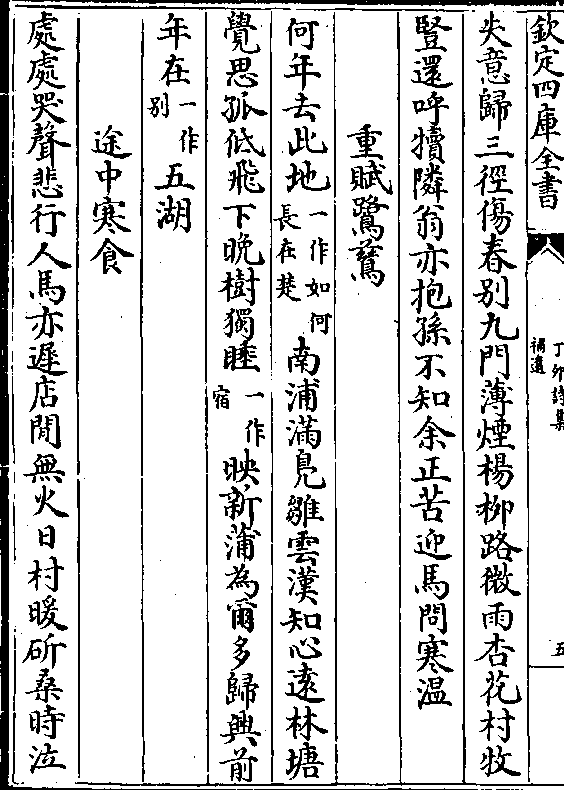 欽定四庫全書
丁卯詩集
補遺
五
失意歸三徑傷春别九門薄煙楊柳路微雨杏花村牧
豎還呼犢隣翁亦抱孫不知余正苦迎馬問寒温
重賦鷺鷥
何年去此地一作如何長在楚南浦滿鳬雛雲漢知心遠林塘
覺思孤低飛下晚樹獨睡一作宿映新蒲為爾多歸興前
年在一作别五湖
途中寒食
處處哭聲悲行人馬亦遲店閒無火日村暖斫桑時泣